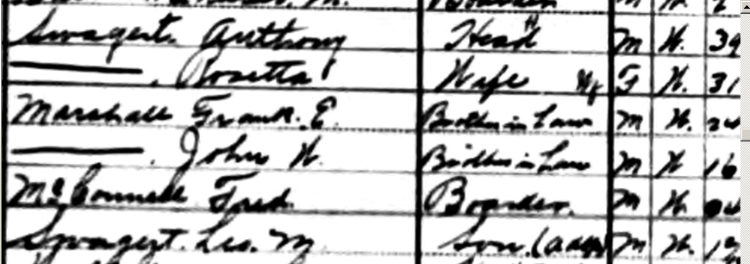 Swagert. Anthony Head M W. 39
———, Rosetta Wife F W. 31
Marshall Frank. E. Brother in Law M W. 24
———. John W. Brother in Law M W 16
McConnell Fred Boarder. M W.
Swagert. Leo. M Son. M W.